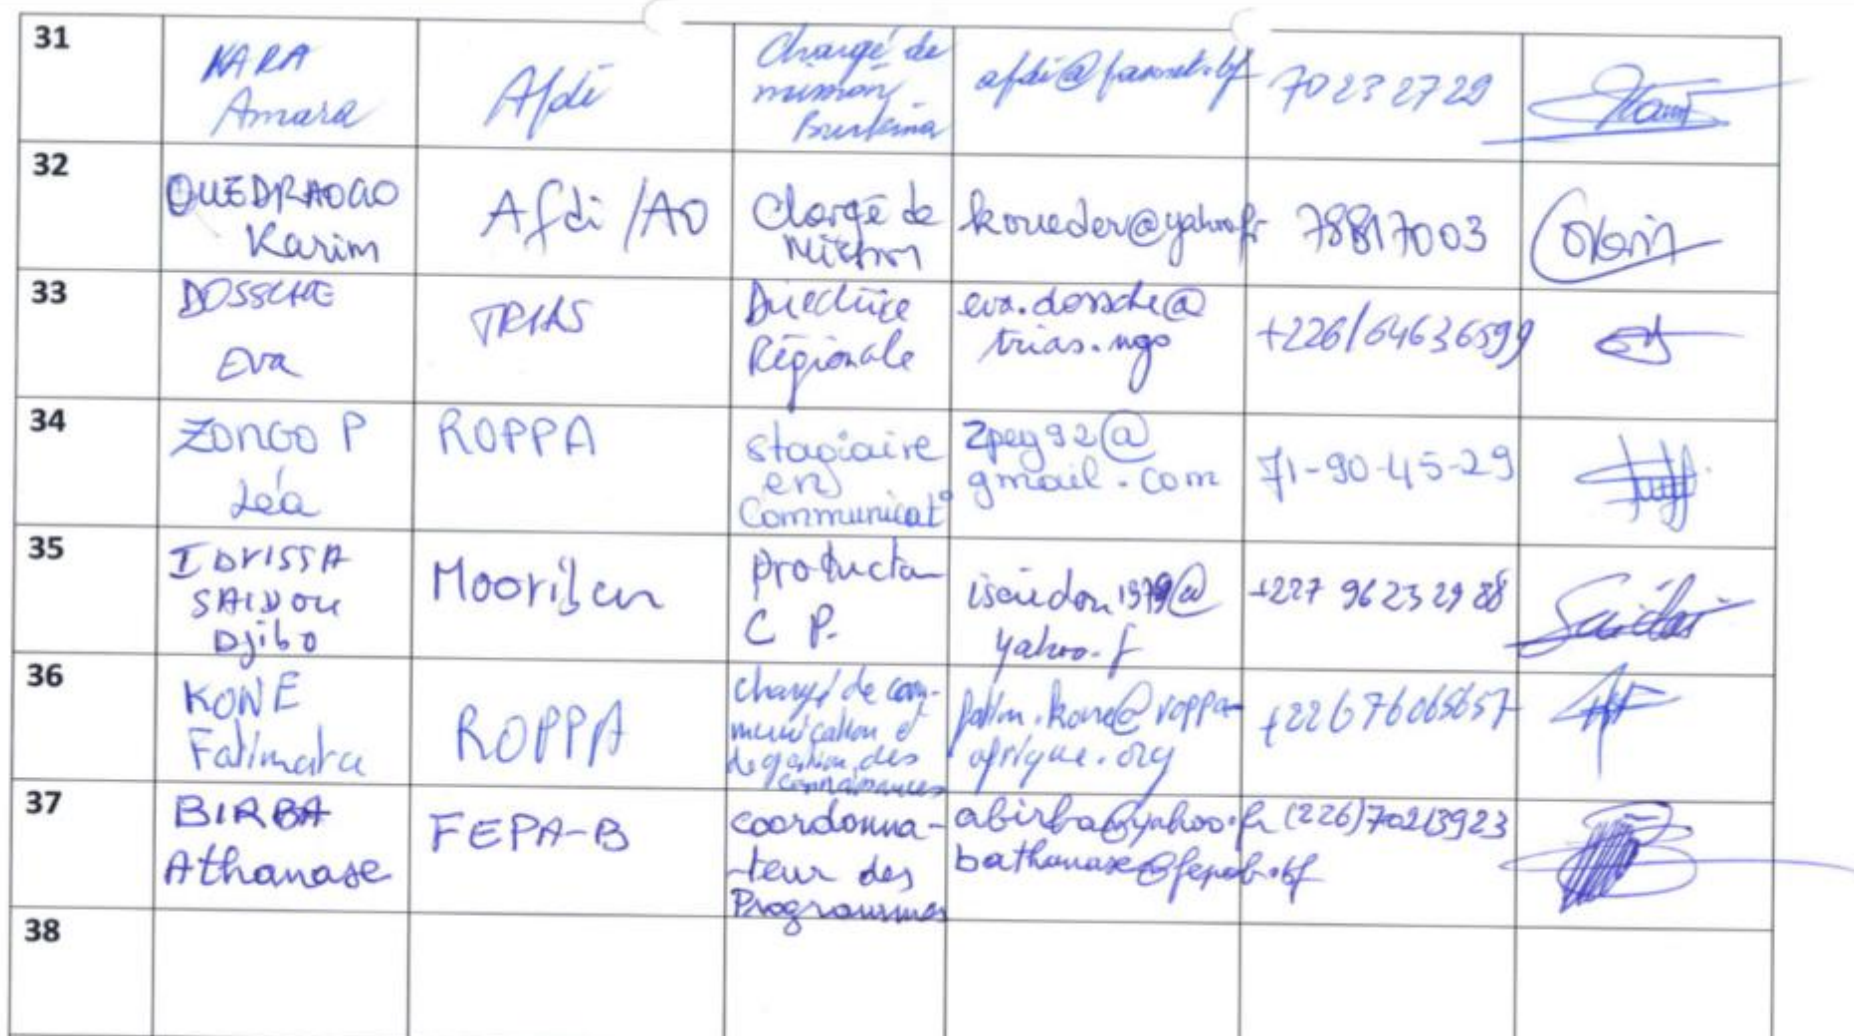 31
NARA
Amara
Afdi
Chargé de
mission
Burkina
afdi@fasonet.bf
70 23 27 29
32
OUEDRAOGO
Karim
Afdi/AO
Chargé de
Mission
koueder@yahoo.fr
78817003
33
DOSSCHE
Eva
TRIAS
Directrice
Régionale
eva.dossche@
trias.ngo
+226/64636599
34
ZONGO P
Léa
ROPPA
Stagiaire
en
Communicat°
zpey92@
gmail.com
71-90-45-29
35
IDRISSA
SAIDOU
Djibo
Mooriben
C P.
isaidou1979@
yahoo.f
+227 96 23 29 88
36
KONE
Fatimata
ROPPA
chargé de com-
munication et
de gestion des
connaissances
fatim.kone@roppa-
afrique.org
+226 76065657
37
BIRBA
Athanase
FEPA-B
coordonna-
-teur des
Programmes
abirba@yahoo.fr
bathanase@fepab.bf
(226)70213923
38